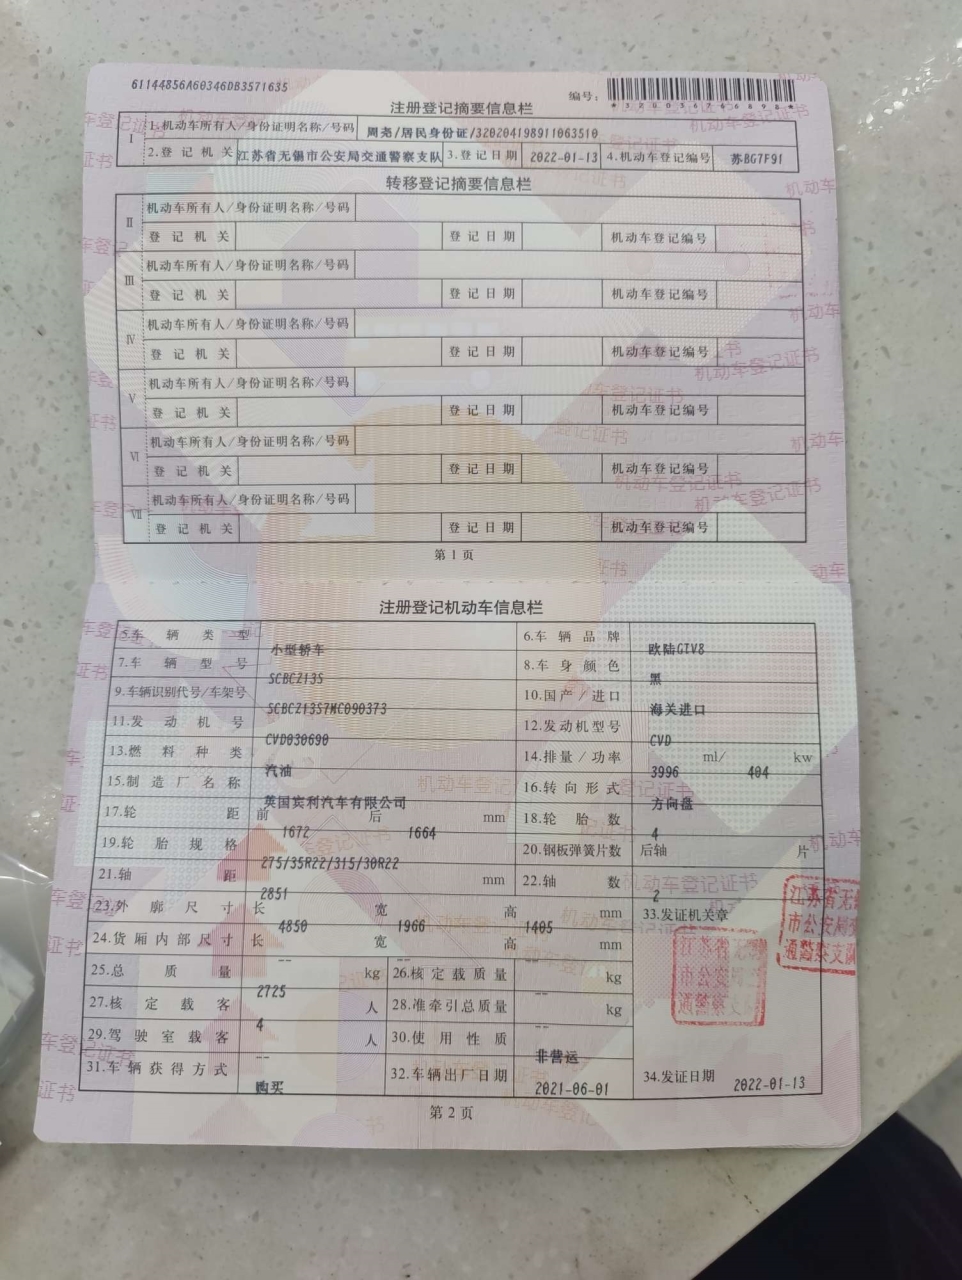 61144856A60346DB3571635
编号：
*320036766898*
注册登记摘要信息栏
I 1.机动车所有人/身份证明名称/号码 周尧/居民身份证/320204198911063510
2.登记机关 江苏省无锡市公安局交通警察支队 3.登记日期 2022-01-13 4.机动车登记编号 苏BG7F91
转移登记摘要信息栏
II 机动车所有人/身份证明名称/号码
登记机关 登记日期 机动车登记编号
III 机动车所有人/身份证明名称/号码
登记机关 登记日期 机动车登记编号
IV 机动车所有人/身份证明名称/号码
登记机关 登记日期 机动车登记编号
V 机动车所有人/身份证明名称/号码
登记机关 登记日期 机动车登记编号
VI 机动车所有人/身份证明名称/号码
登记机关 登记日期 机动车登记编号
VII 机动车所有人/身份证明名称/号码
登记机关 登记日期 机动车登记编号
第1页
注册登记机动车信息栏
5.车辆类型 小型轿车 6.车辆品牌 欧陆GTV8
7.车辆型号 SCBCZ13S 8.车身颜色 黑
9.车辆识别代号/车架号 SCBCZ13S7MC090373 10.国产/进口 海关进口
11.发动机号 CVD030690 12.发动机型号 CVD
13.燃料种类 汽油 14.排量/功率 3996 ml/ 404 kw
15.制造厂名称 英国宾利汽车有限公司 16.转向形式 方向盘
17.轮距 前 1672 后 1664 mm 18.轮胎数 4
19.轮胎规格 275/35R22/315/30R22 20.钢板弹簧片数 后轴 片
21.轴距 2851 mm 22.轴数 2
23.外廓尺寸 长 4850 宽 1966 高 1405 mm 33.发证机关章
24.货厢内部尺寸 长 -- 宽 -- 高 -- mm
25.总质量 2725 kg 26.核定载质量 -- kg
27.核定载客 4 人 28.准牵引总质量 -- kg
29.驾驶室载客 -- 人 30.使用性质 非营运
31.车辆获得方式 购买 32.车辆出厂日期 2021-06-01 34.发证日期 2022-01-13
江苏省无锡
市公安局交
通警察支队
第2页